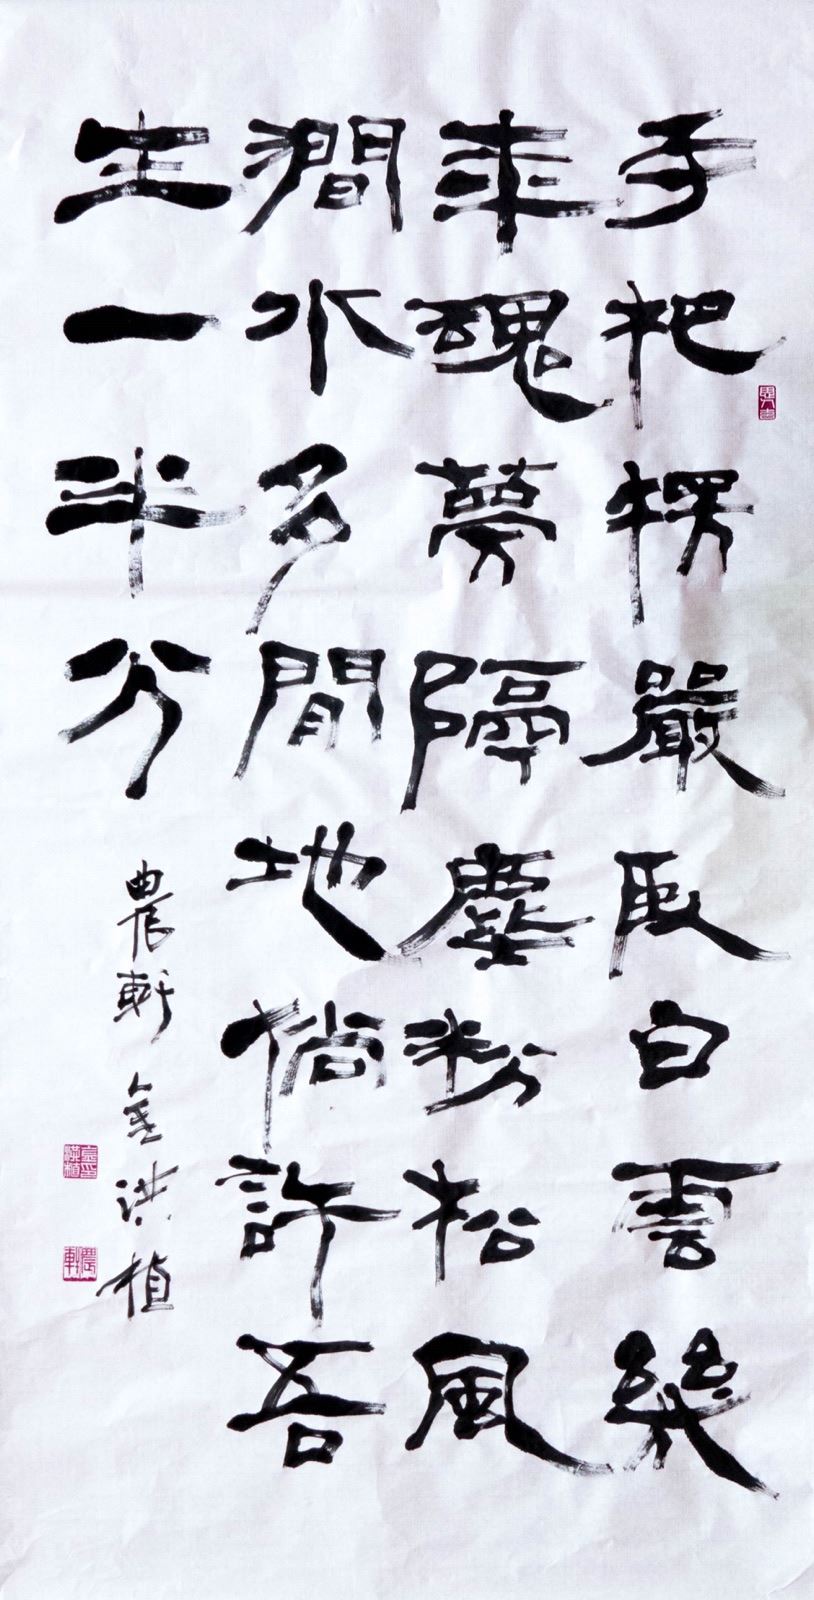 手把楞嚴臥白雲幾
年魂夢隔塵粉松風
澗水多閒地倘許吾
生一半分
農軒 金洪植
農軒